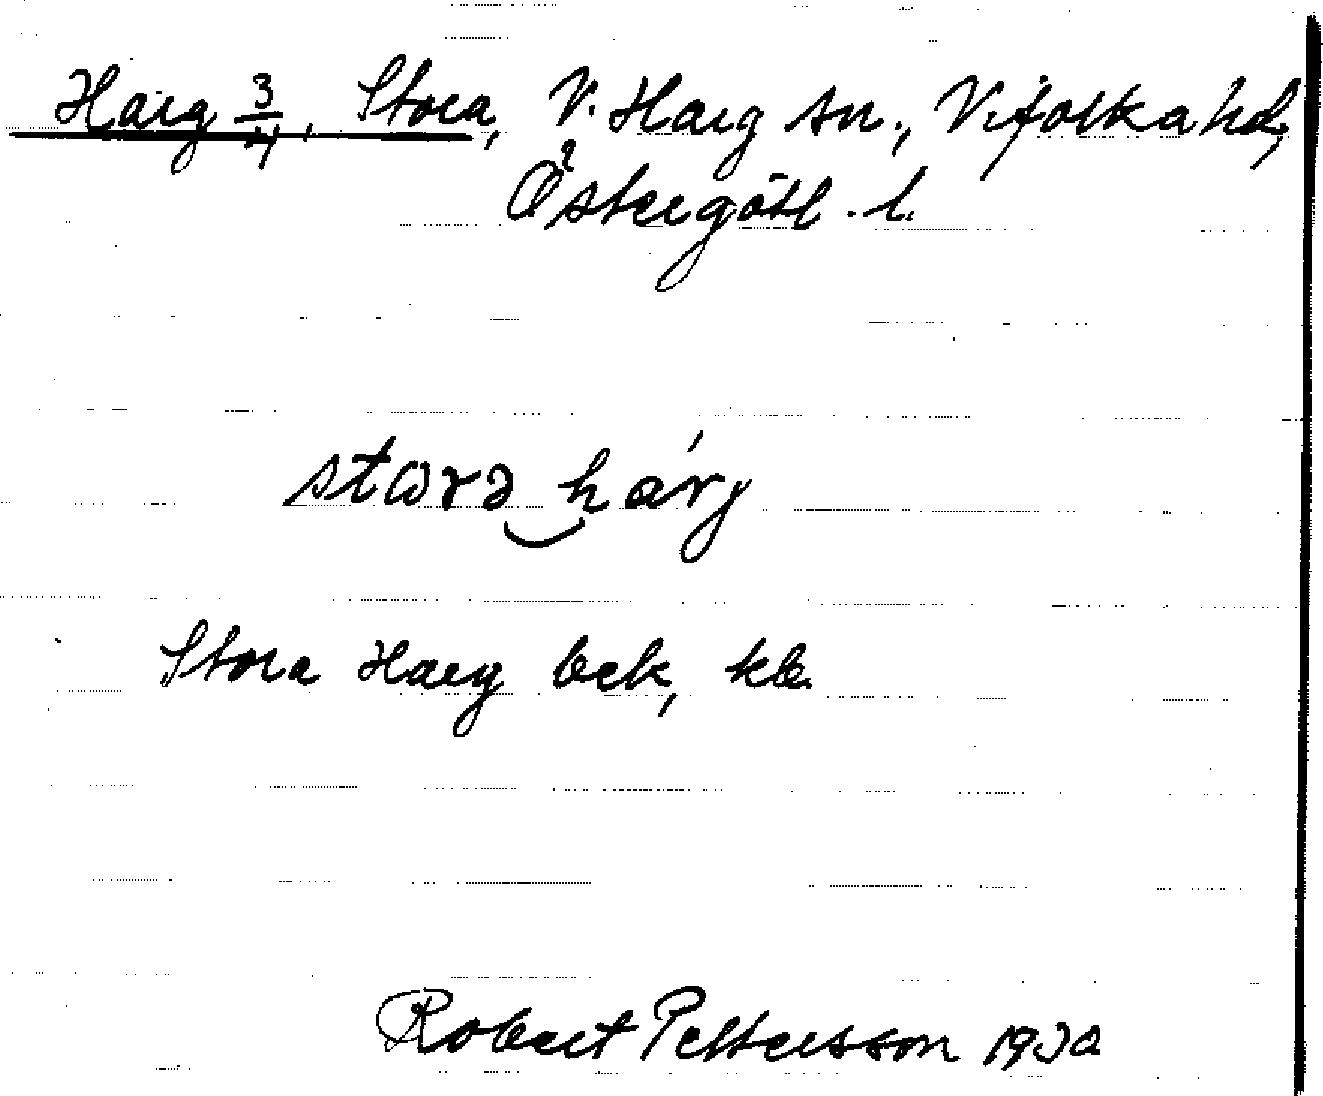 Harg 3/4, Stora, V. Harg sn., Vifolka hd,
Östergötl. l.
stωrə hárj
Stora Harg bek, kb.
Robert Pettersson 1930